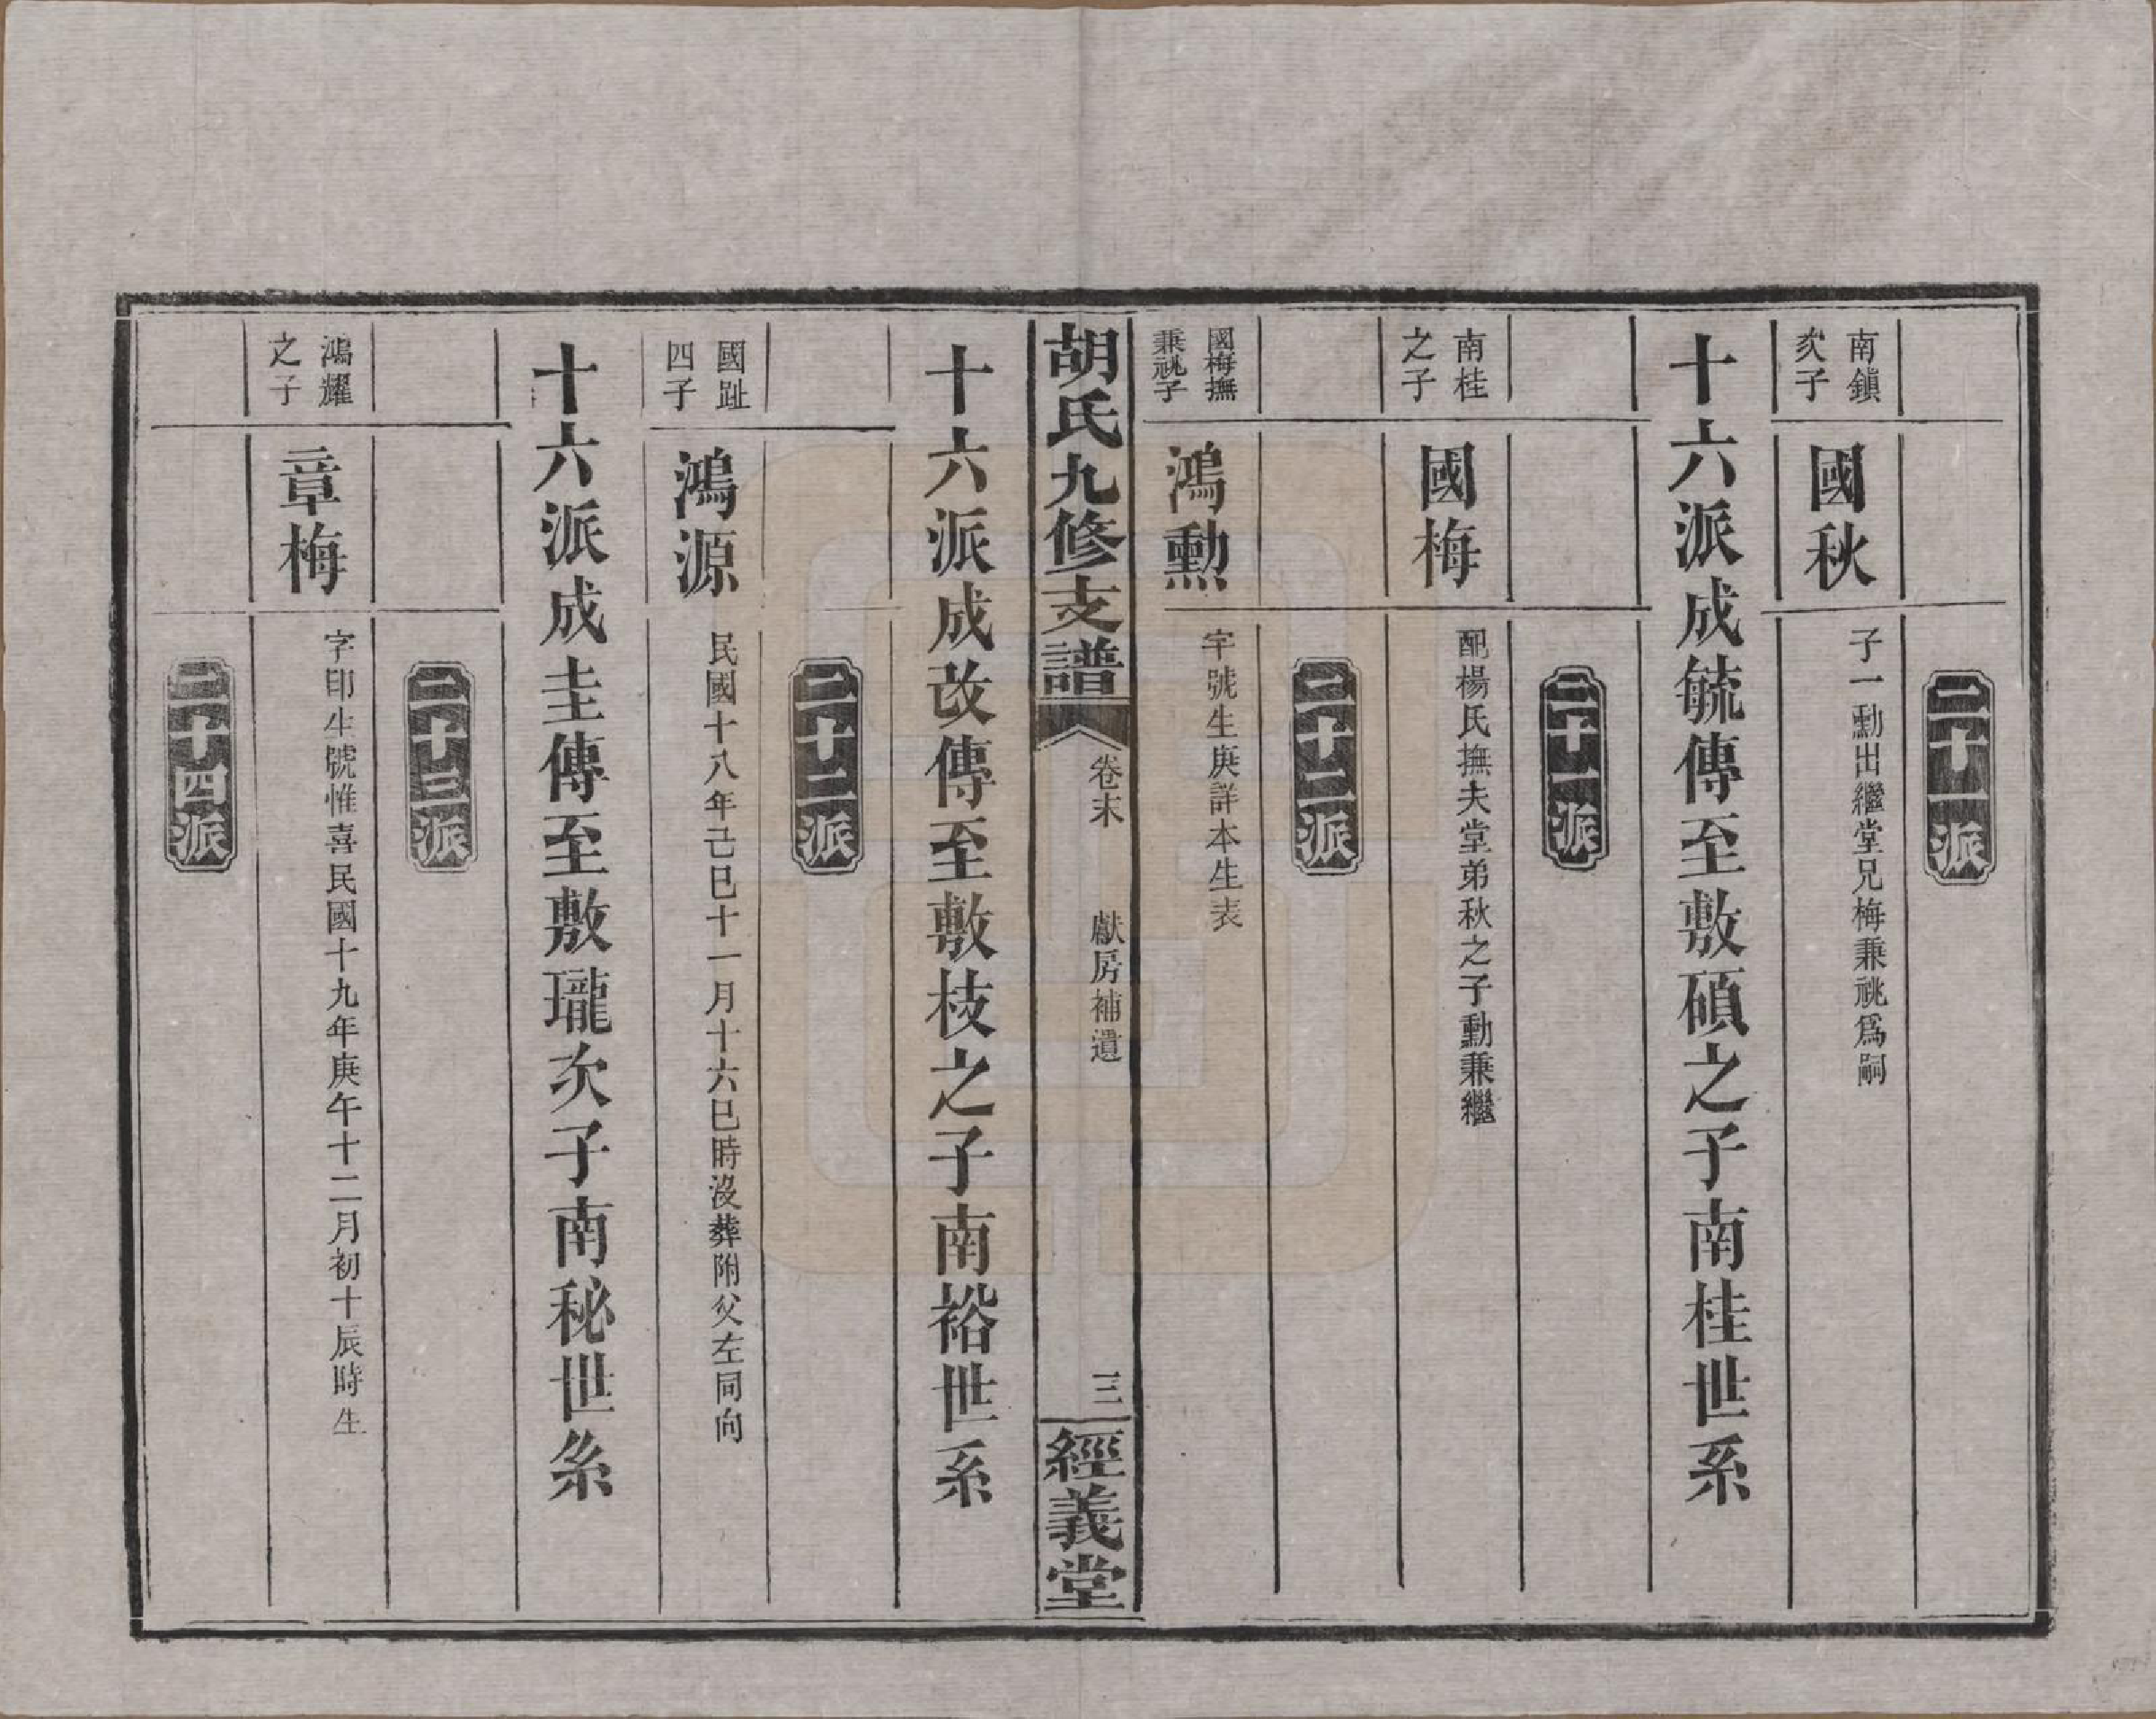 二十一派
南鎮
次子
國秋
子一勳出繼堂兄梅兼祧爲嗣
十六派成毓傳至敷碩之子南桂世系
二十一派
南桂
之子
國梅
配楊氏撫夫堂弟秋之子勳兼繼
二十二派
國梅撫
兼祧子
鴻勳
字號生庚詳本生表
胡氏九修支譜
卷末
獻房補遺
三
經義堂
十六派成改傳至敷枝之子南裕世系
二十二派
國趾
四子
鴻源
民國十八年己巳十一月十六巳時沒葬附父左同向
十六派成圭傳至敷瓏次子南秘世系
二十三派
鴻耀
之子
章梅
字印生號惟喜民國十九年庚午十二月初十辰時生
二十四派